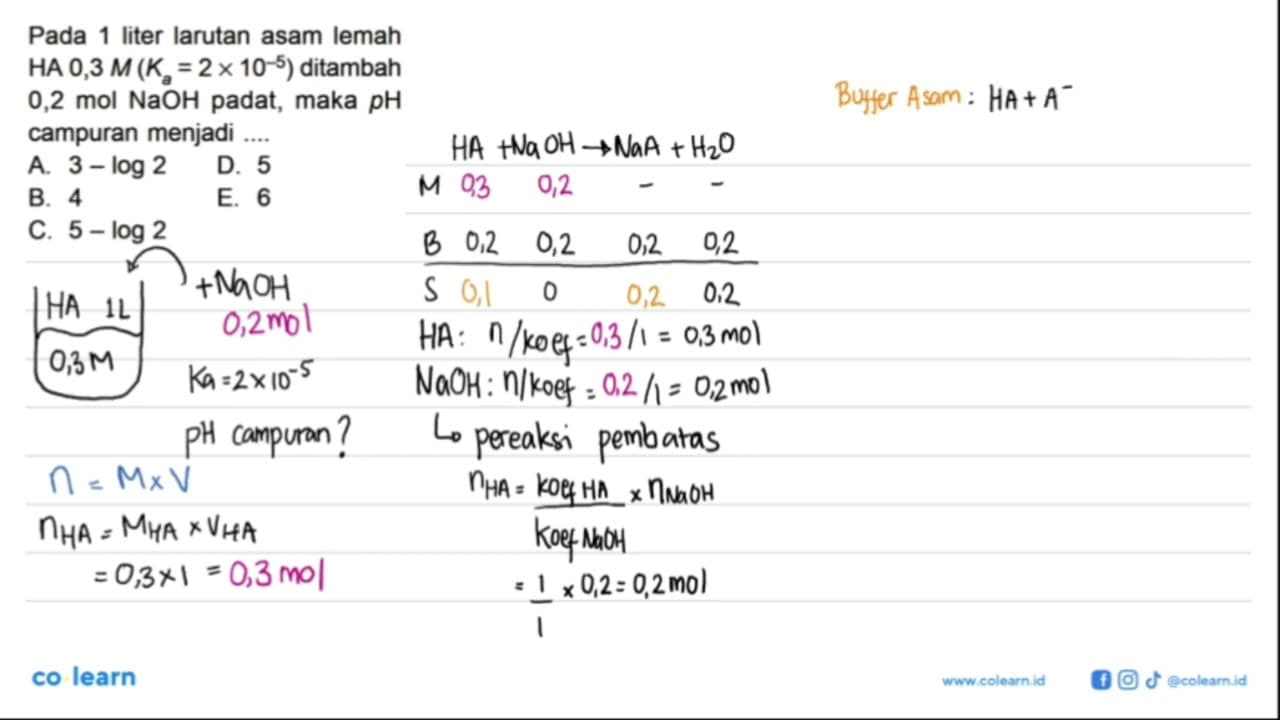 Pada 1 liter larutan asam lemah
HA 0,3 M (Kₐ = 2 × 10⁻⁵) ditambah
0,2 mol NaOH padat, maka pH
campuran menjadi ....
A. 3 – log 2 D. 5
B. 4 E. 6
C. 5 – log 2
HA 1L
0,3 M
+NaOH
0,2 mol
Ka = 2 × 10⁻⁵
pH campuran?
n = M × V
nHA = MHA × VHA
= 0,3 × 1 = 0,3 mol
HA + NaOH → NaA + H₂O
M 0,3 0,2 - -
B 0,2 0,2 0,2 0,2
S 0,1 0 0,2 0.2
HA : n/koef = 0,3/1 = 0,3 mol
NaOH : n/koef = 0.2/1 = 0,2 mol
↳ pereaksi pembatas
nHA = koef HA / koef NaOH × nNaOH
= 1/1 × 0,2 = 0,2 mol
Buffer Asam : HA + A⁻
co learn
www.colearn.id
@colearn.id